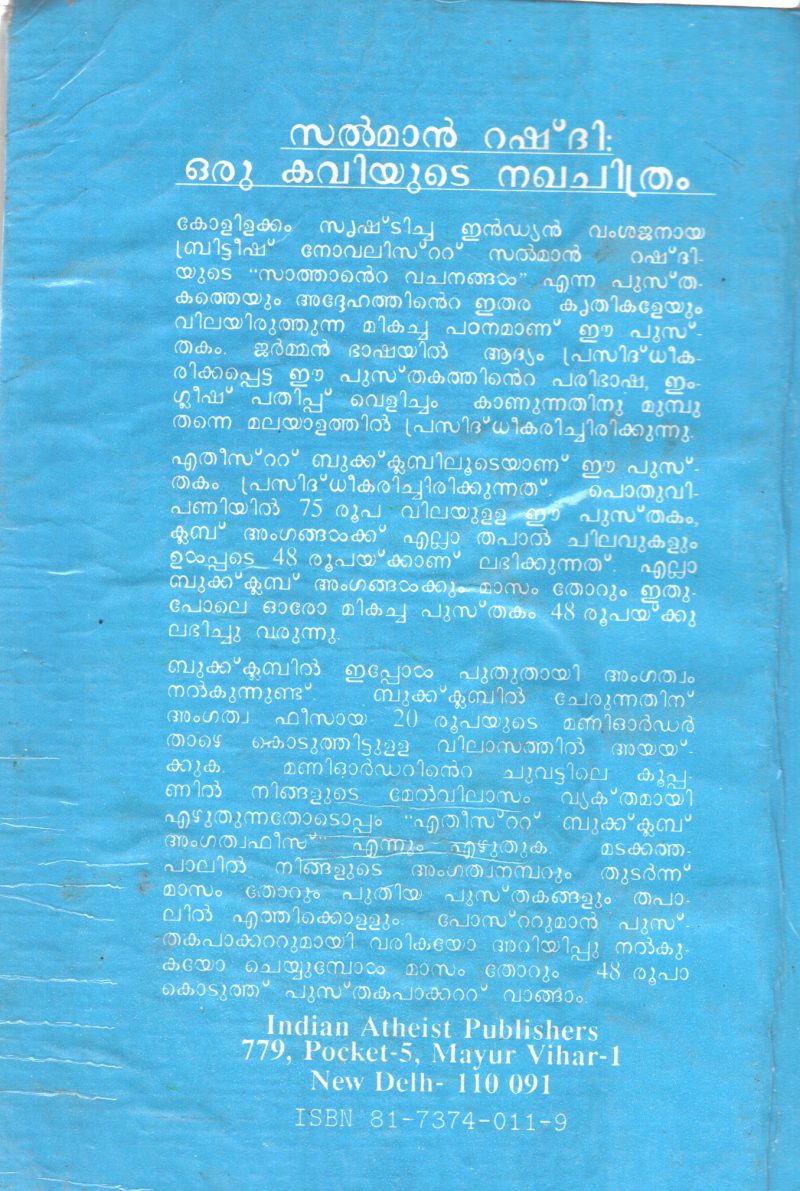 സൽമാൻ റഷ്ദി:
ഒരു കവിയുടെ നഖചിത്രം
കോളിളക്കം സൃഷ്ടിച്ച ഇൻഡ്യൻ വംശജനായ
ബ്രിട്ടീഷ് നോവലിസ്ററ് സൽമാൻ റഷ്ദി-
യുടെ "സാത്താന്റെ വചനങ്ങൾ" എന്ന പുസ്ത-
കത്തെയും അദ്ദേഹത്തിന്റെ ഇതര കൃതികളേയും
വിലയിരുത്തുന്ന മികച്ച പഠനമാണ് ഈ പുസ്-
തകം. ജർമ്മൻ ഭാഷയിൽ ആദ്യം പ്രസിദ്ധീക-
രിക്കപ്പെട്ട ഈ പുസ്തകത്തിന്റെ പരിഭാഷ, ഇം-
ഗ്ലീഷ് പതിപ്പ് വെളിച്ചം കാണുന്നതിനു മുമ്പു
തന്നെ മലയാളത്തിൽ പ്രസിദ്ധീകരിച്ചിരിക്കുന്നു.
എതീസ്ററ് ബുക്ക്ക്ലബിലൂടെയാണ് ഈ പുസ്-
തകം പ്രസിദ്ധീകരിച്ചിരിക്കുന്നത് പൊതുവി-
പണിയിൽ 75 രൂപ വിലയുള്ള ഈ പുസ്തകം,
ക്ലബ് അംഗങ്ങൾക്ക് എല്ലാ തപാൽ ചിലവുകളും
ഉൾപ്പടെ 48 രൂപയ്ക്കാണ് ലഭിക്കുന്നത്. എല്ലാ
ബുക്ക്ക്ലബ് അംഗങ്ങൾക്കും മാസം തോറും ഇതു-
പോലെ ഓരോ മികച്ച പുസ്തകം 48 രൂപയ്ക്കു
ലഭിച്ചു വരുന്നു.
ബുക്ക്ക്ലബിൽ ഇപ്പോൾ പുതുതായി അംഗത്വം
നൽകുന്നുണ്ട്. ബുക്ക്ക്ലബിൽ ചേരുന്നതിന്
അംഗത്വ ഫീസായ 20 രൂപയുടെ മണിഓർഡർ
താഴെ കൊടുത്തിട്ടുള്ള വിലാസത്തിൽ അയയ്-
ക്കുക. മണിഓർഡറിന്റെ ചുവട്ടിലെ കൂപ്പ-
ണിൽ നിങ്ങളുടെ മേൽവിലാസം വ്യക്തമായി
എഴുതുന്നതോടൊപ്പം "എതീസ്ററ് ബുക്ക്ക്ലബ്
അംഗത്വഫീസ്" എന്നും എഴുതുക. മടക്കത്ത-
പാലിൽ നിങ്ങളുടെ അംഗത്വനമ്പറും തുടർന്ന്
മാസം തോറും പുതിയ പുസ്തകങ്ങളും തപാ-
ലിൽ എത്തിക്കൊള്ളും. പോസ്ററുമാൻ പുസ്-
തകപാക്കററുമായി വരികയോ അറിയിപ്പു നൽകു-
കയോ ചെയ്യുമ്പോൾ മാസം തോറും 48 രൂപാ
കൊടുത്ത് പുസ്തകപാക്കററ് വാങ്ങാം.
Indian Atheist Publishers
779, Pocket-5, Mayur Vihar-1
New Delh- 110 091
ISBN 81-7374-011-9